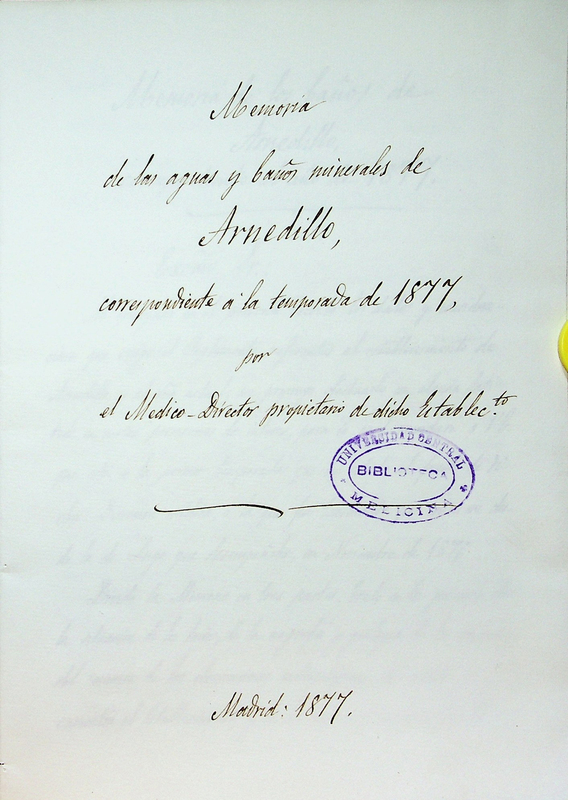 Memoria
de las aguas y baños minerales de
Arnedillo,
correspondiente a la temporada de 1877,
por
el Medico-Director propietario de dicho Establec.to
UNIVERSIDAD CENTRAL
BIBLIOTECA
MEDICINA
Madrid: 1877.